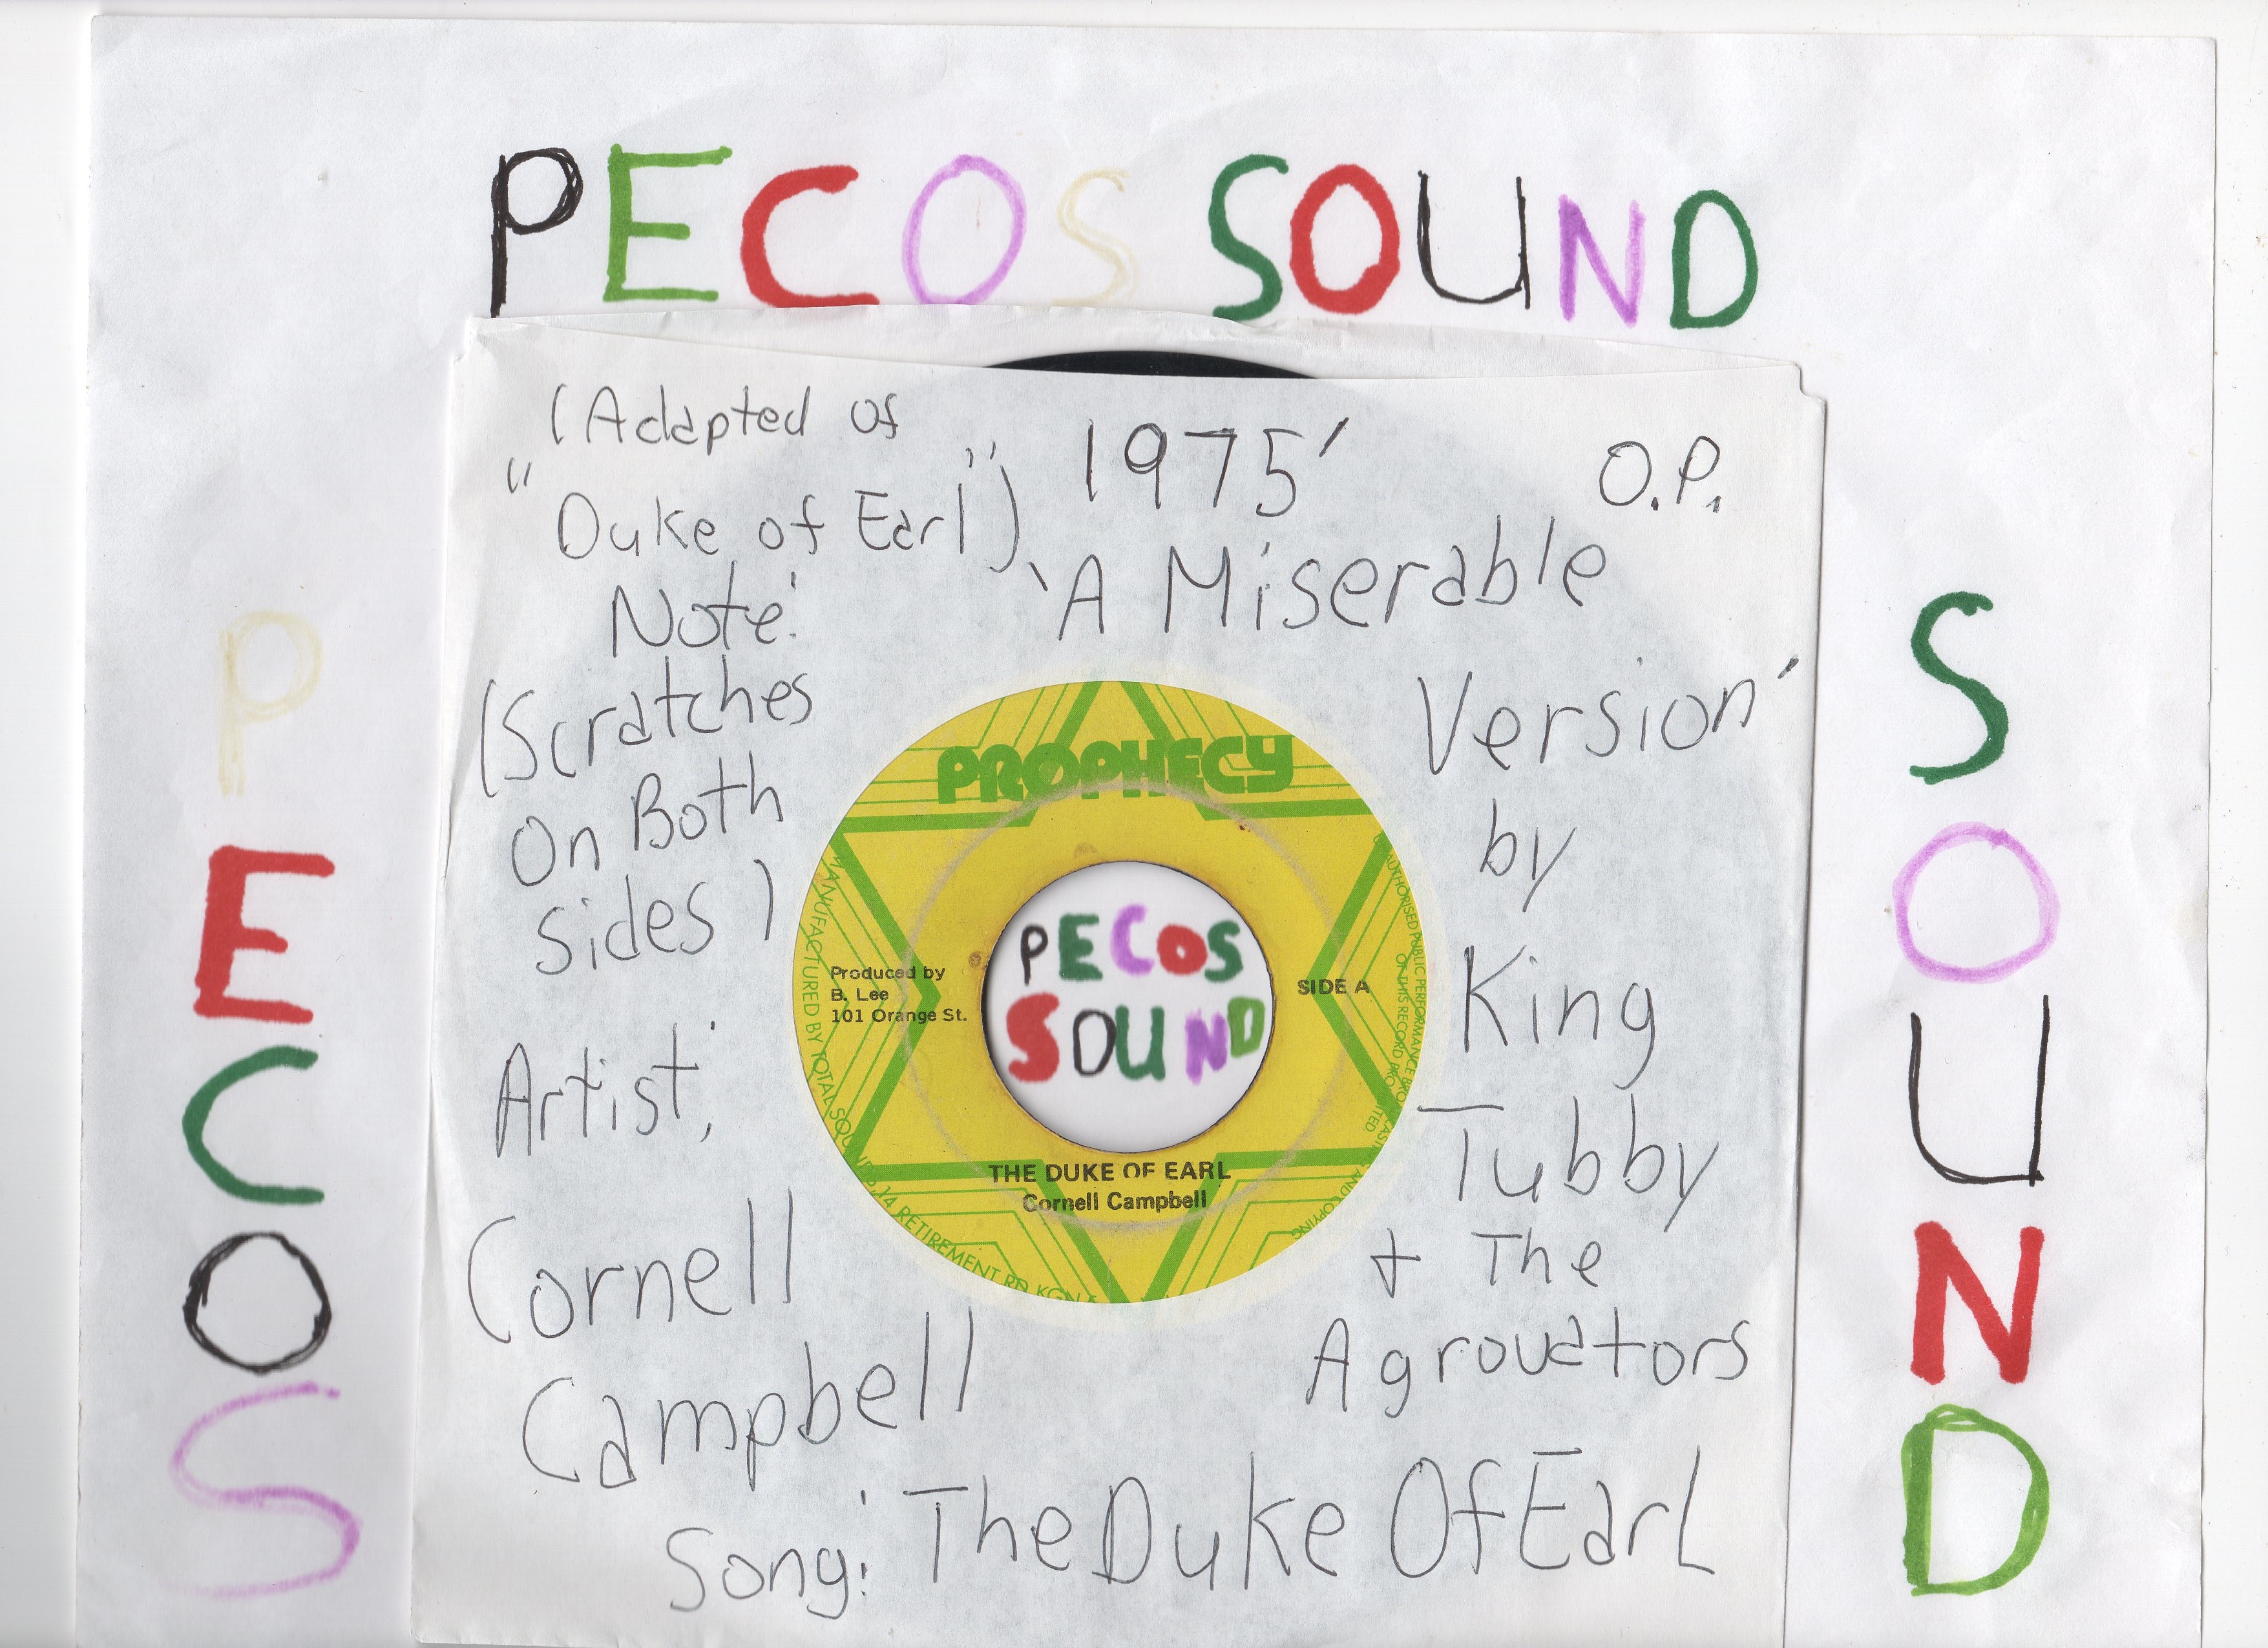 PECOS SOUND
(Adapted of
"Duke of Earl")
1975'
O.P.
Note:
'A Miserable
Version'
by
King
Tubby
+ The
Agrovators
(Scratches
On Both
Sides)
Artist:
Cornell
Campbell
Song: The Duke Of Earl
PROPHECY
Produced by
B. Lee
101 Orange St.
SIDE A
PECOS
SOUND
THE DUKE OF EARL
Cornell Campbell
MANUFACTURED BY TOTAL SOUNDS, 14 RETIREMENT RD. KGN. 5
AUTHORISED PUBLIC PERFORMANCE BROADCASTING AND COPYING
OF THIS RECORD PROHIBITED
P
E
C
O
S
S
O
U
N
D